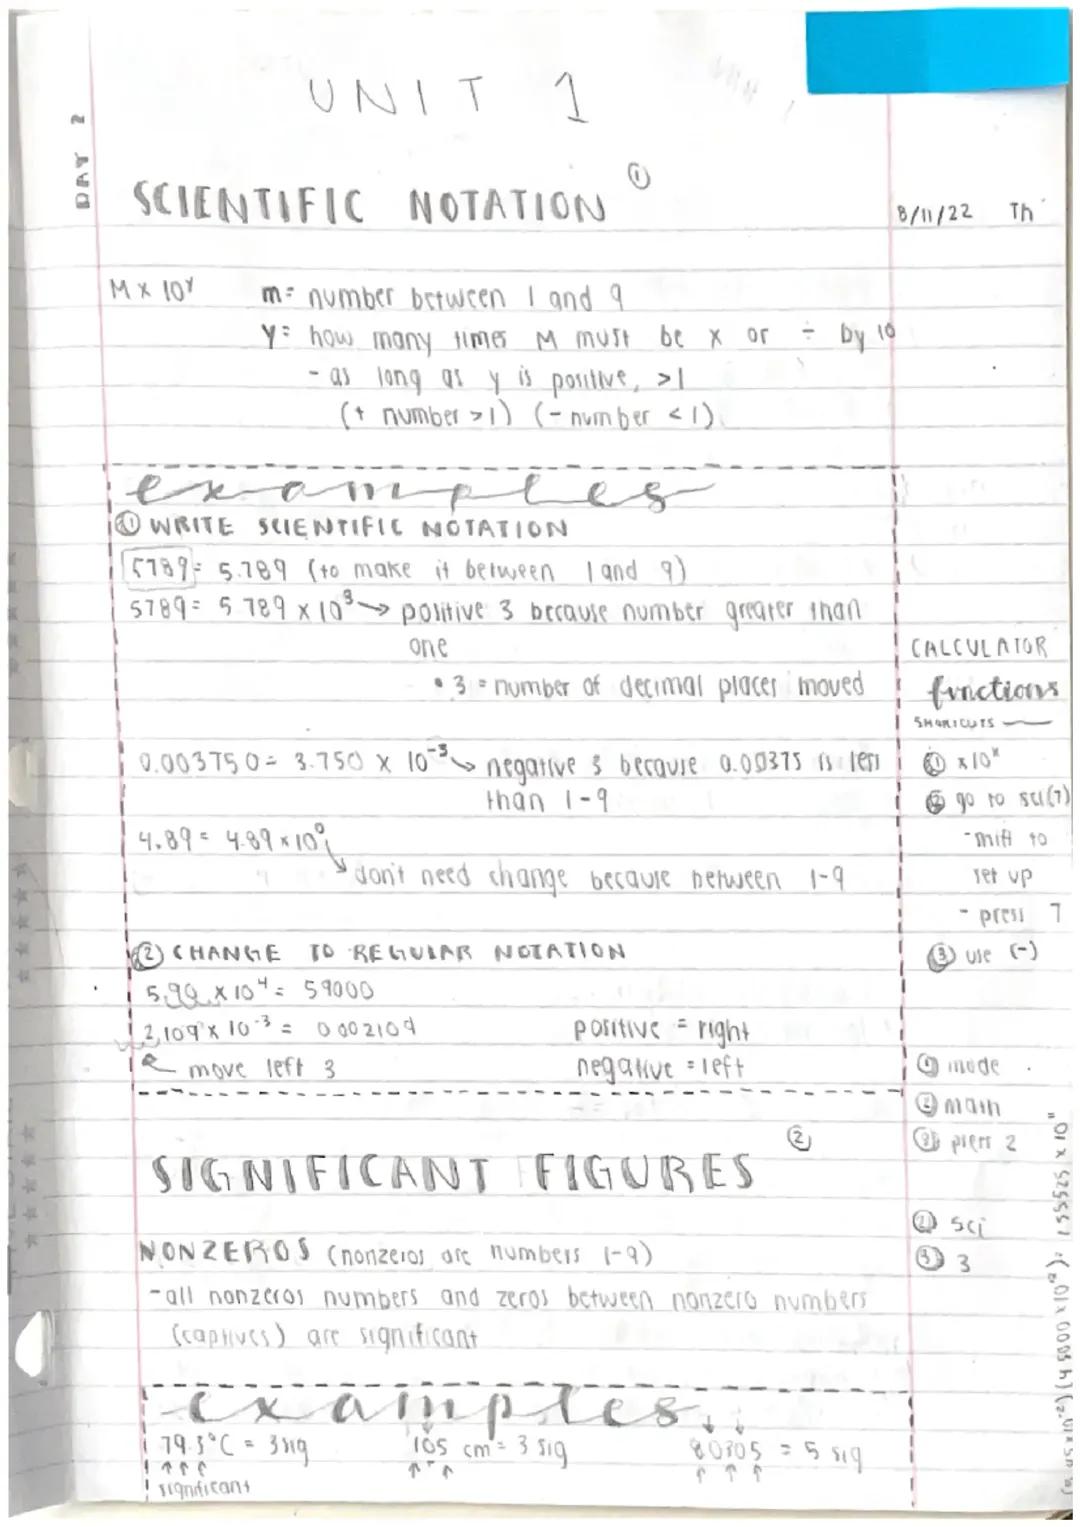 UNIT 1
DAY 2
SCIENTIFIC NOTATION ①
8/11/22 Th
M × 10ʸ m= number between 1 and 9
Y= how many times M must be x or ÷ by 10
- as long as y is positive, >1
(+ number >1) (- number <1)
examples
① WRITE SCIENTIFIC NOTATION
5789= 5.789 (to make it between 1 and 9)
5789= 5.789 × 10³ → positive 3 because number greater than
one
• 3 = number of decimal places moved
0.003750= 3.750 × 10⁻³ ↘ negative 3 because 0.00375 is less
than 1-9
4.89= 4.89×10⁰
↘ don't need change because between 1-9
② CHANGE TO REGULAR NOTATION
5.90 × 10⁴= 59000
2.109 × 10⁻³ = 0.002109 positive = right
move left 3 negative = left
CALCULATOR
functions
SHORTCUTS
① ×10ˣ
② go to sci(7)
- shift to
set up
- press 7
③ use (-)
① mode
② math
③ press 2
② sci
③ 3
SIGNIFICANT FIGURES ②
NONZEROS (nonzeros are numbers 1-9)
-all nonzeros numbers and zeros between nonzero numbers
(captives) are significant
examples
79.3°C = 3sig 105 cm = 3 sig 80305 = 5 sig
↑↑↑
significant